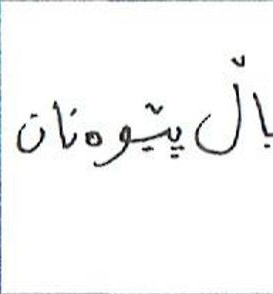 باڵ پێوەنان